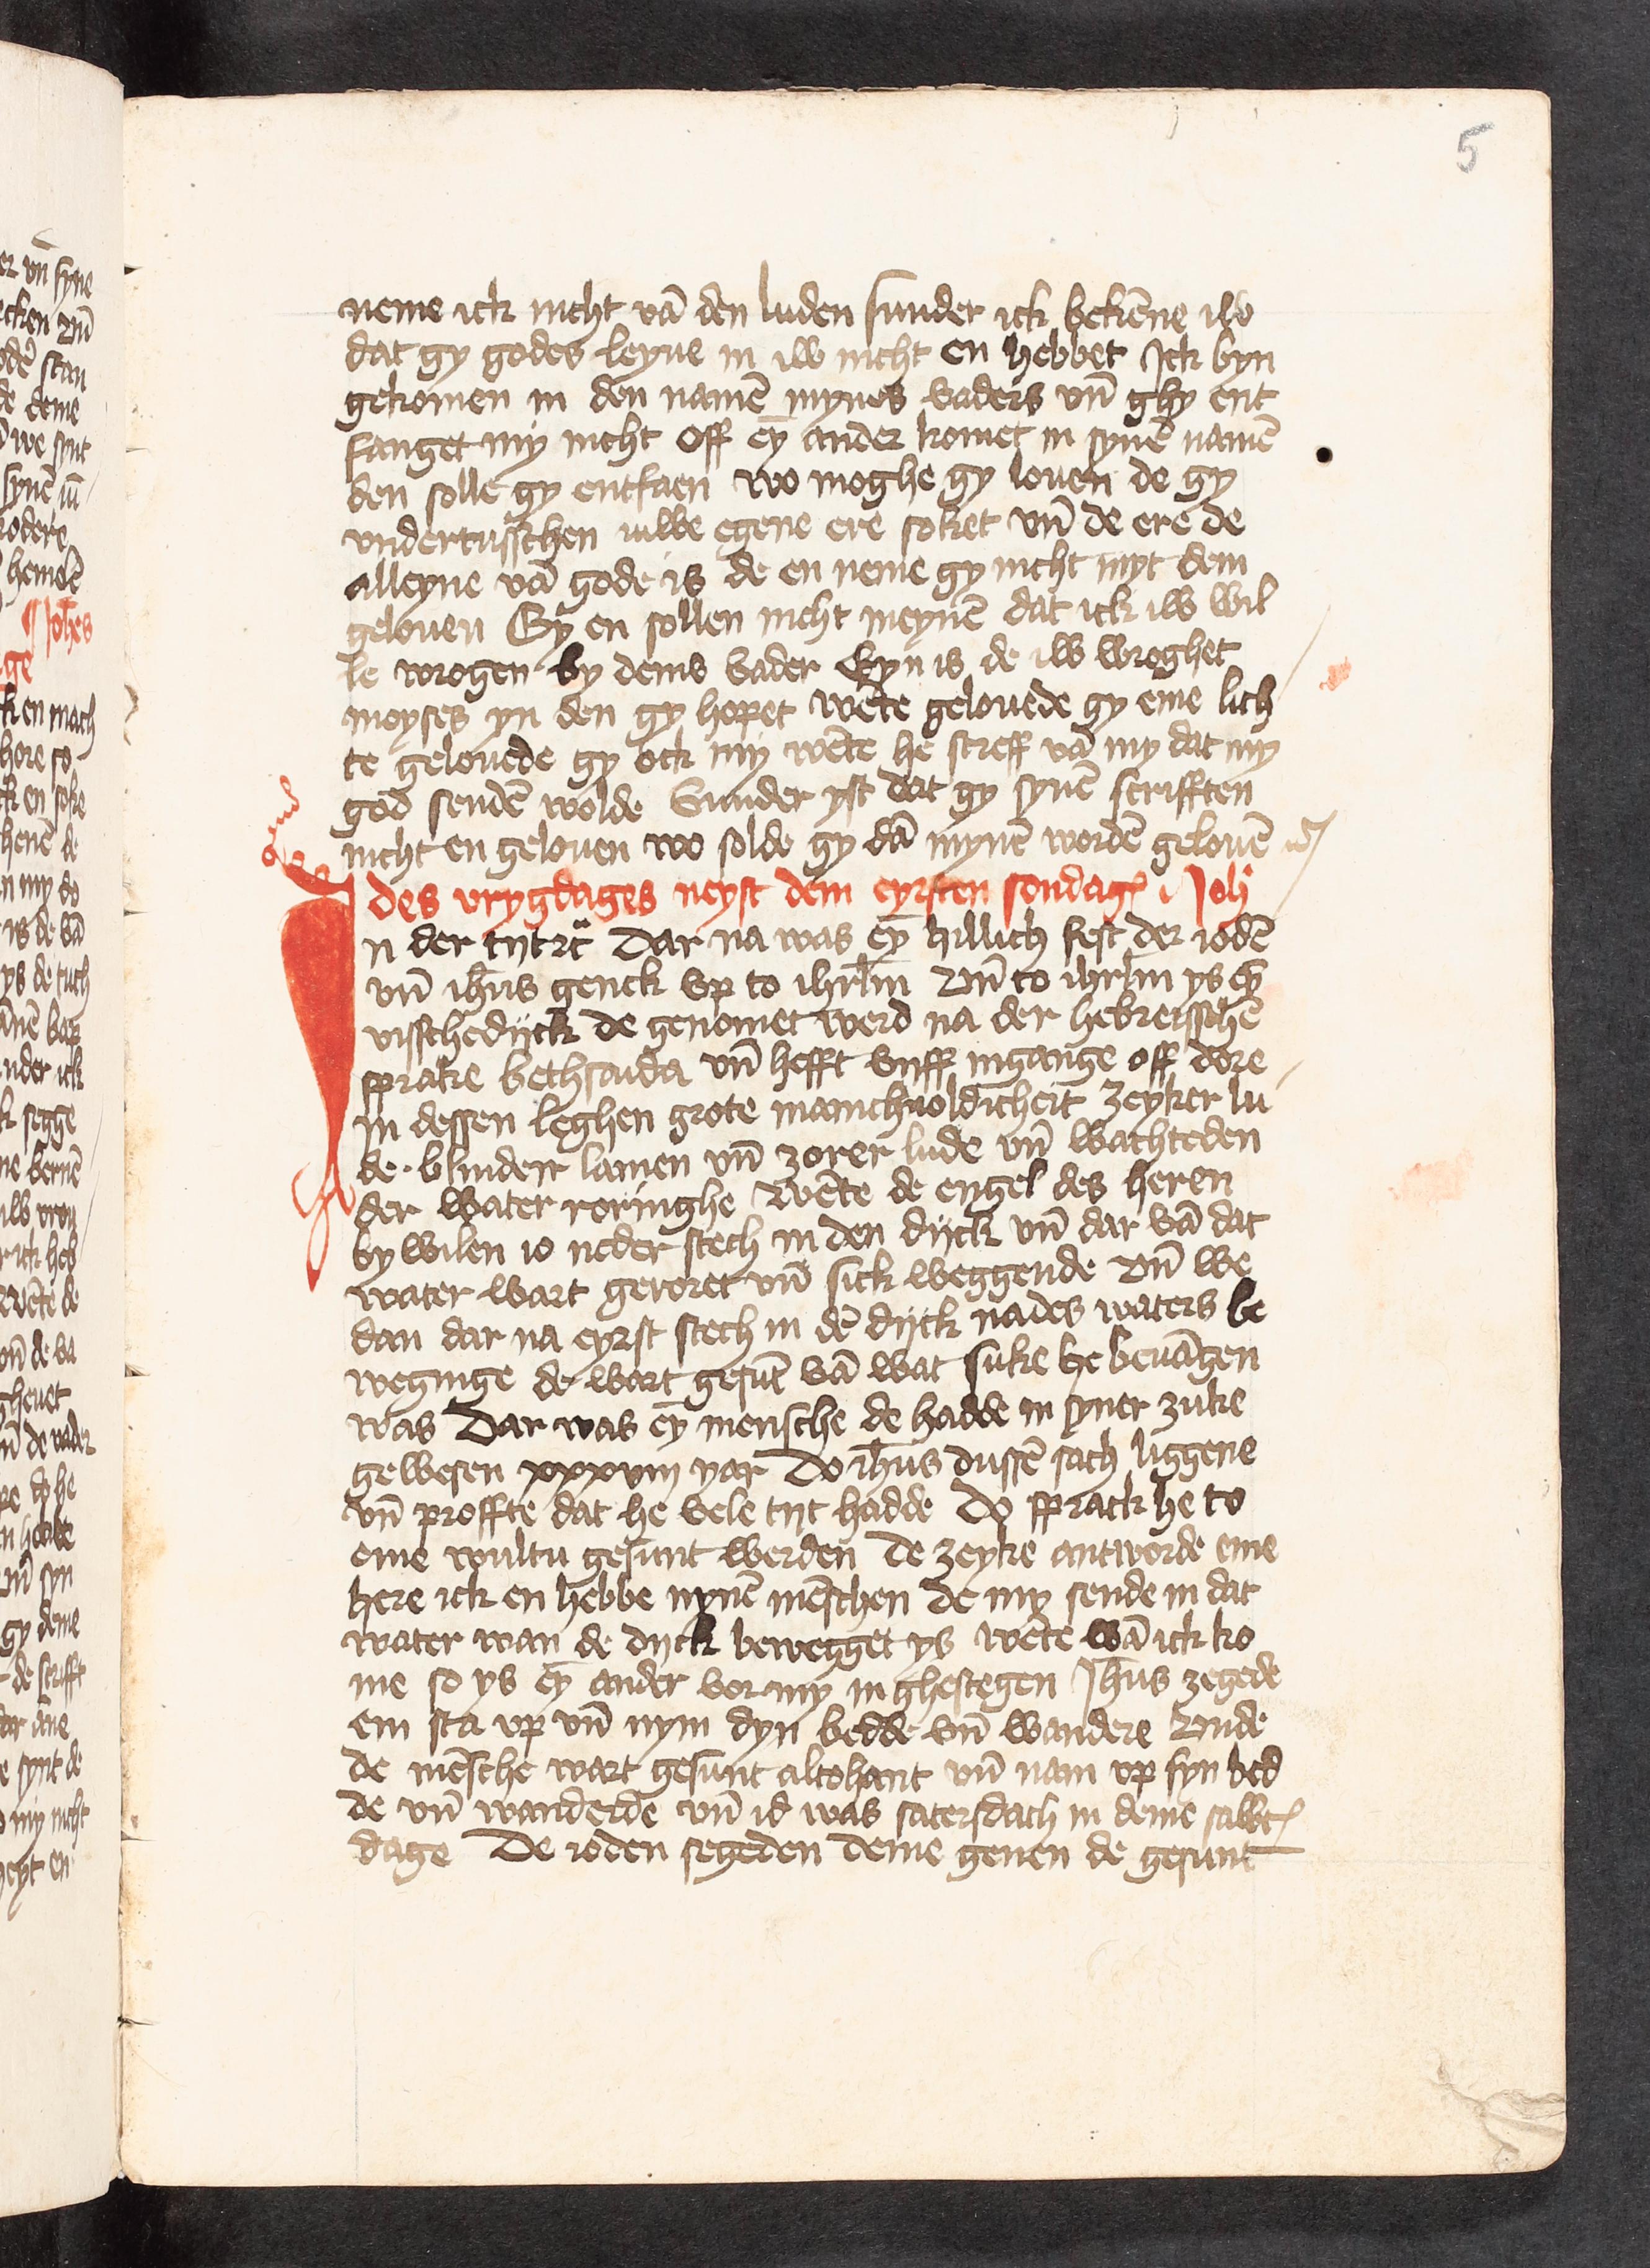 5
neme ick nicht vā den luden sunder ick bekēne iw
dat gy godes leyue in iw nicht en hebbet Jck byn
gekomen in den namē mynes vaders vn̄ ghy ent
fanget my nicht Off eȳ ander komet in synē namē
den solle gy entfaen Wo moghe gy louen de gy
vndertusschen iuwe egene ere soket vn̄ de ere de
alleyne vā gode is de en neme gy nicht myt dem
gelouen Gy en sollen nicht meynē dat ick iw wil
le wrogen by dems vader Eyn is de iw wroghet
moyses yn den gy hopet Wēte gelouede gy eme lich
te gelouede gy ock my wēte he screff vā my dat my
god sendē wolde Sunder yst dat gy synē scrifften
nicht en gelouen wo solde gy dā mynē wordē gelouē
des vrygdages neyst dem eyrsten sondag Joh
Jn der tijt rc̄ Dar na was eȳ hillich fest der iodē
vn̄ ih̄us genck vp to ihrlm̄ Vn̄ to ihrlm ys eȳ
visschedijck de genomet werd na der hebreisschē
sprake bethsaida vn̄ hefft vyff ingange off dore
Jn dessen leghen grote manichuoldicheit zeyker lu
de blinden lamen vn̄ zorer lude vn̄ wachteden
der water roringhe Wēte de engel des heren
by wilen io neder stech in den dijck vn̄ dar vā dat
water wart geroret vn̄ sick weggende Vn̄ we
dan dar na eyrst stech in dē dijck na des waters be
weginge de wart gesūt vā wat suke he beuāgen
was Dar was eȳ mensche de hadde in syner zuke
gewesen xxxviij yar Do ih̄us dussē sach liggene
vn̄ proffte dat he vele tijt hadde Do sprack he to
eme wultu gesunt werden De zeyke antworde eme
here ick en hebbe nynē mēschen de my sende in dat
water wan de dijck bewegget ys wēte wā ick ko
me so ys eȳ ander vor my in ghestegen Jh̄us zegede
em sta vp vn̄ nym dyn bedde vn̄ wandere Vnde
de mēsche wart gesunt altohant vn̄ nam vp syn bed
de vn̄ wanderde vn̄ id was satersdach in deme sabbt
dage De ioden segeden deme genen de gesunt